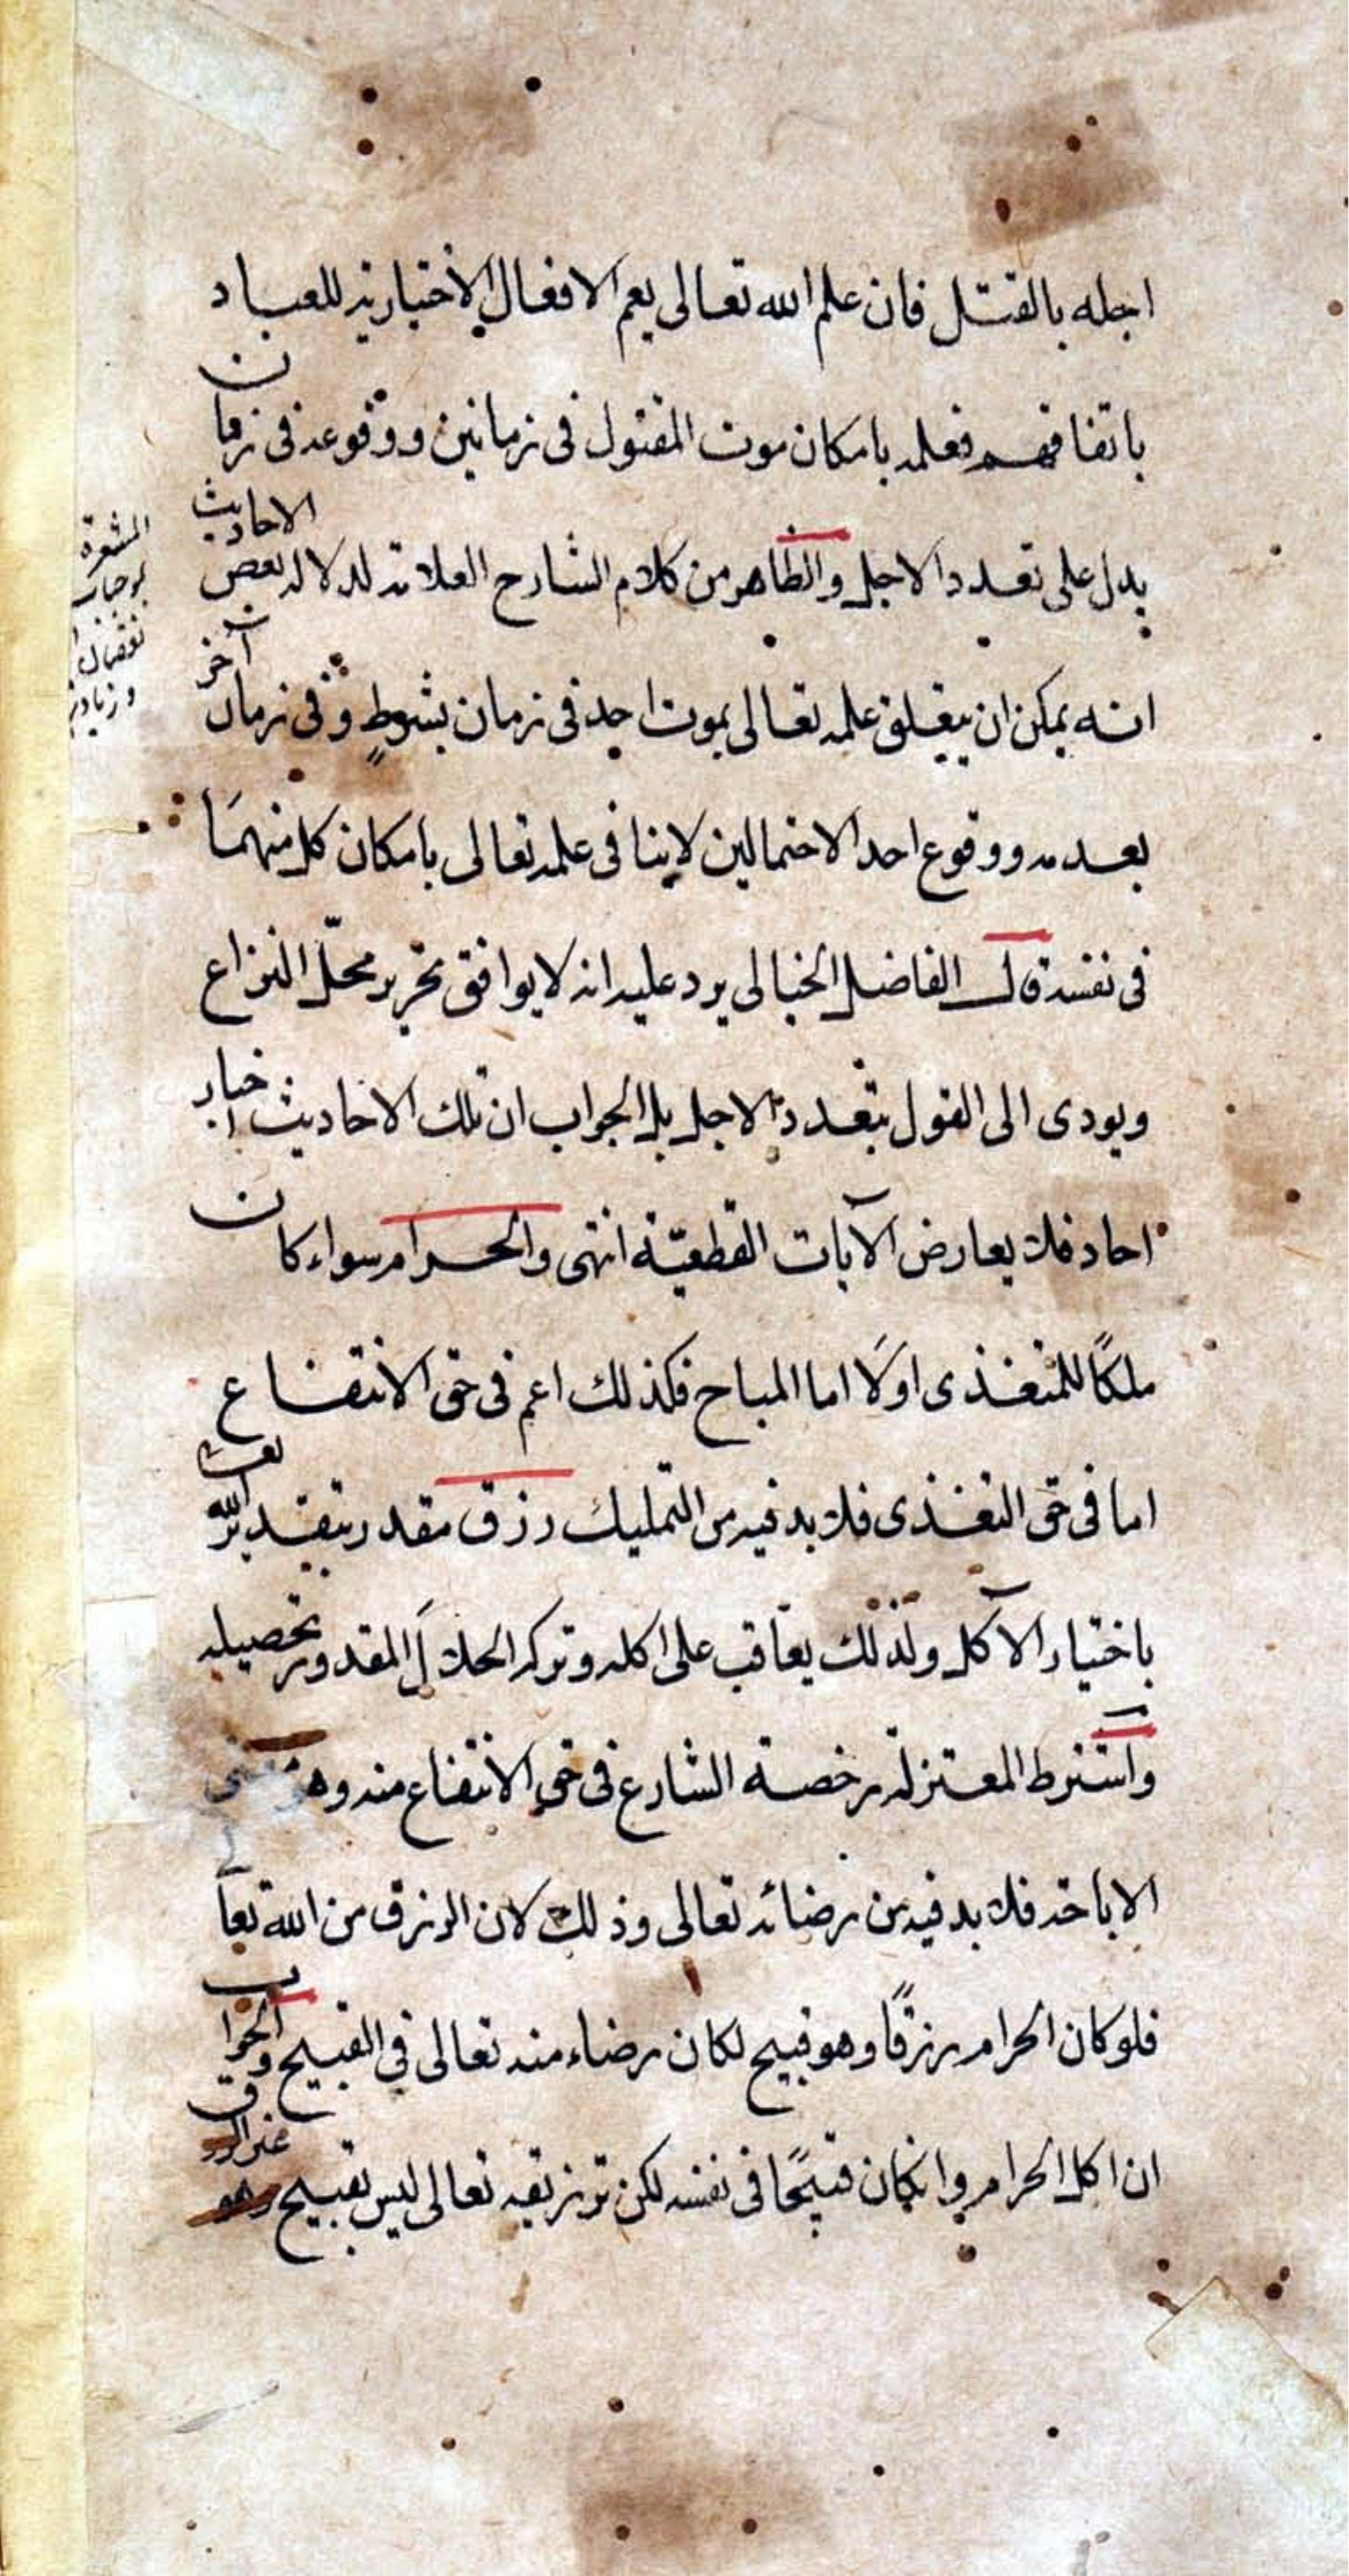 اجله بالقتل فان علم الله تعالى يعم الافعال الاختيارية للعباد
باتفاقهم فعلمه بامكان موت المقتول فى زمانين ووقوعه فى زمان
يدل على تعدد الاجل والظاهر من كلام الشارح العلامة لدلالة بعض الاحاديث
المشعرة
انه يمكن ان يتعلق علمه تعالى بموت احد فى زمان بشرط وفى زمان آخر
بعدمه ووقوع احد الاحتمالين لا ينافى علمه تعالى بامكان كل منهما
فى نفسه قال الفاضل الخيالى يرد عليه انه لا يوافق تحرير محلّ النزاع
ويودى الى القول بتعدد الاجل بل الجواب ان تلك الاحاديث اخبار
احاد فلا يعارض الآيات القطعيّة انتهى والحرام سواء كان
ملكًا للمتغذى اولَا اما المباح فكذلك اعم فى حق الانتفاع
اما فى حق التغذى فلا بد فيه من التمليك رزق مقدر بتقدير الله تعالى
باختيار الآكل ولذلك يعاقب على اكله وتركه الحلالَ المقدور تحصيله
واشترط المعتزلة رخصة الشارع فى حق الانتفاع منه وهو
الاباحة فلا بد فيه من رضائه تعالى وذلك لان الرزق من الله تعا
فلو كان الحرام رزقًا وهو قبيح لكان رضاء منه تعالى فى القبيح والجواب
ان اكل الحرام وانكان قبيحًا فى نفسه لكن ترزيقه تعالى ليس بقبيح